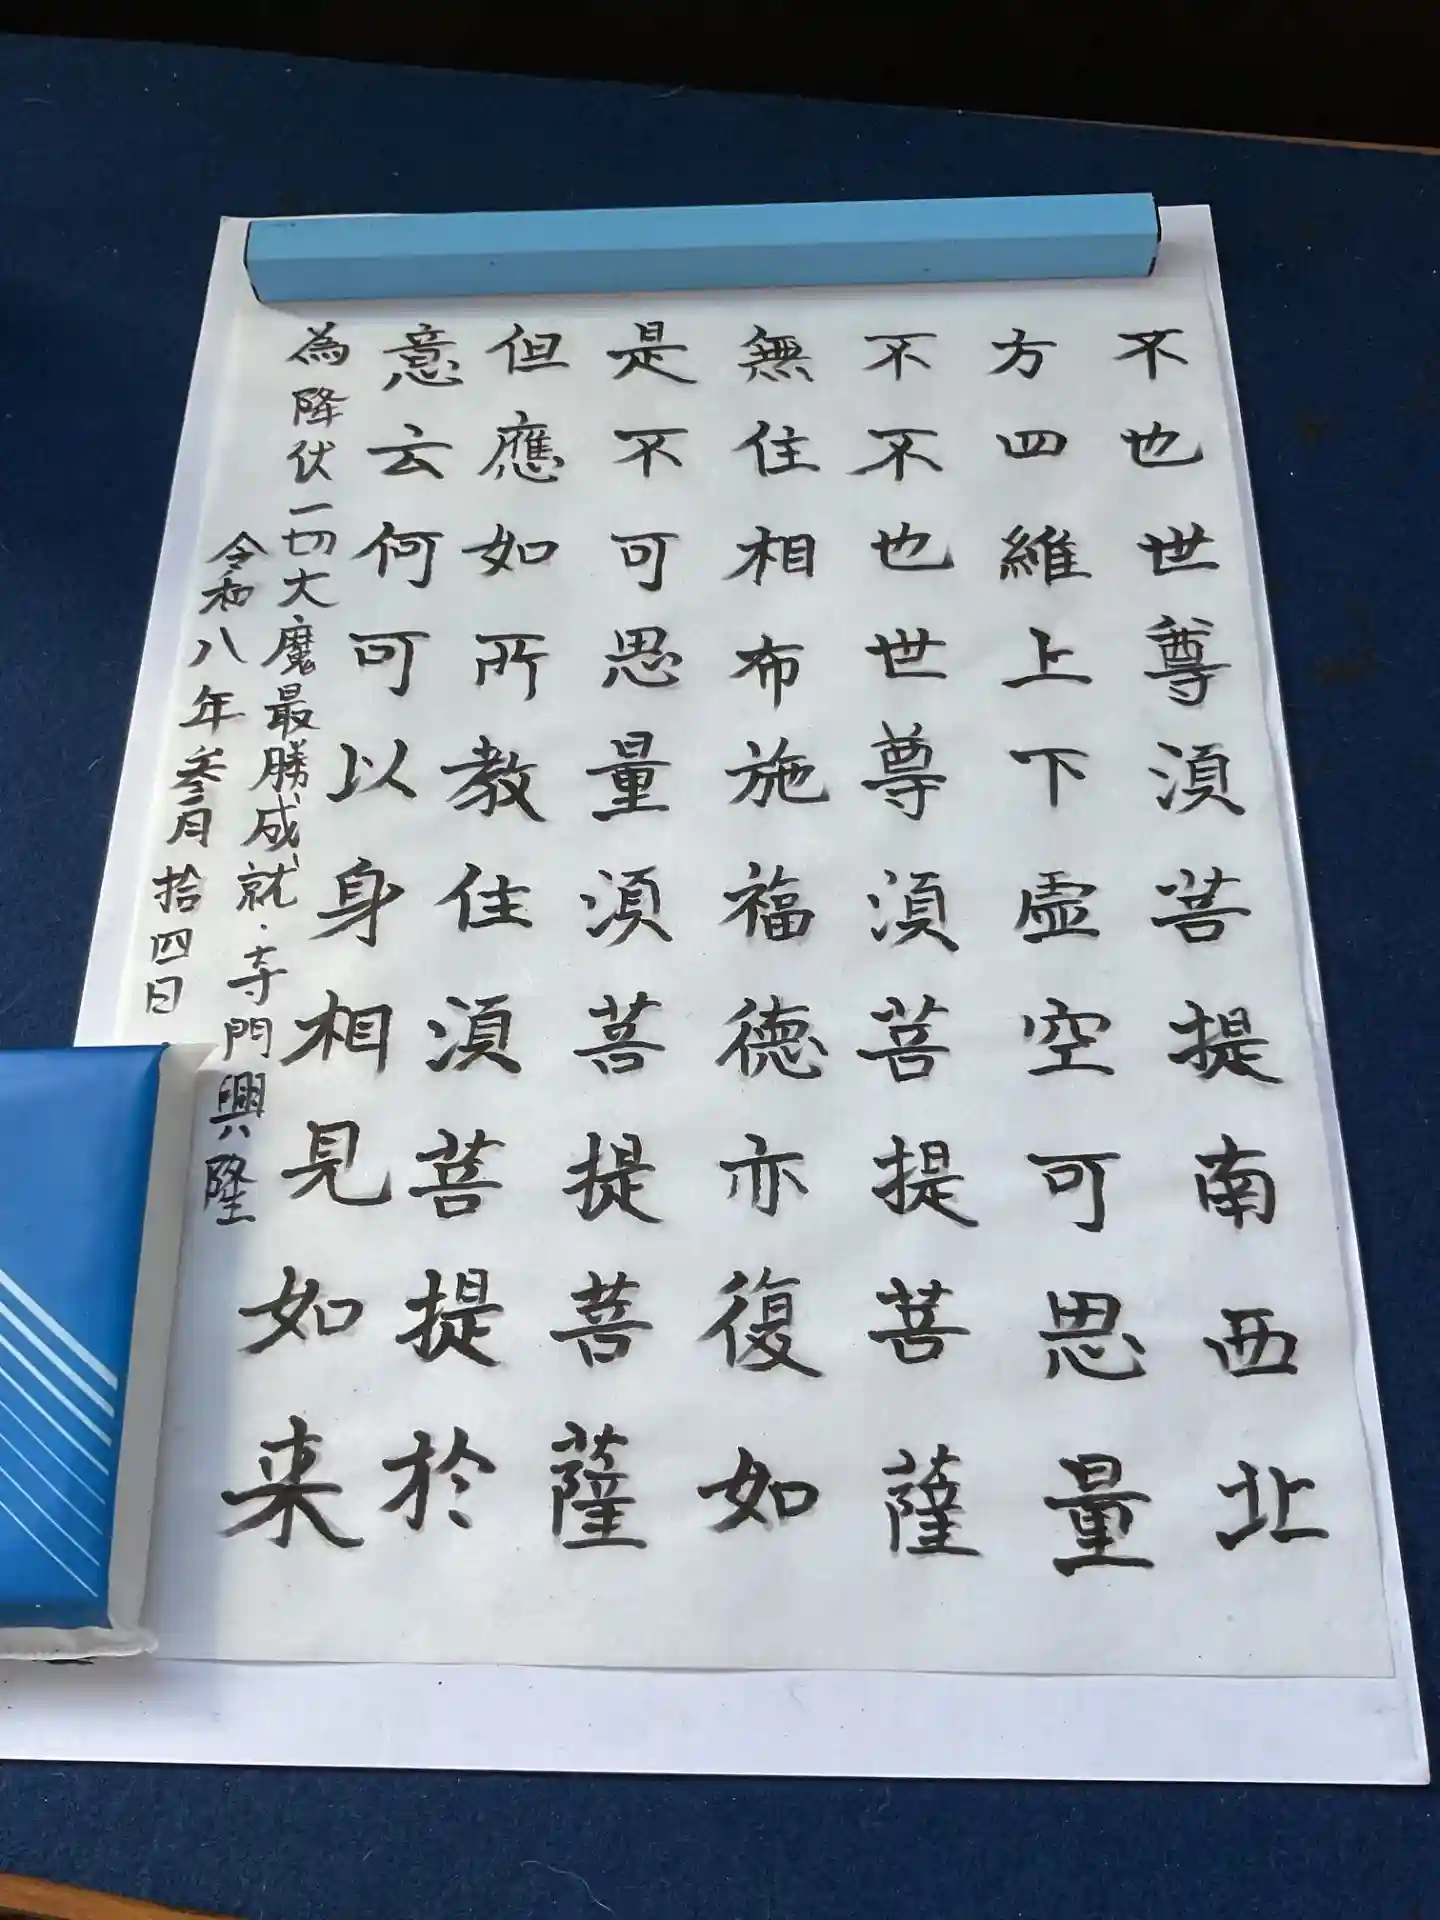 不也世尊須菩提南西北
方四維上下虚空可思量
不不也世尊須菩提菩薩
無住相布施福徳亦復如
是不可思量須菩提菩薩
但應如所教住須菩提於
意云何可以身相見如来
為降伏一切大魔最勝成就·寺門興隆
令和八年参月拾四日